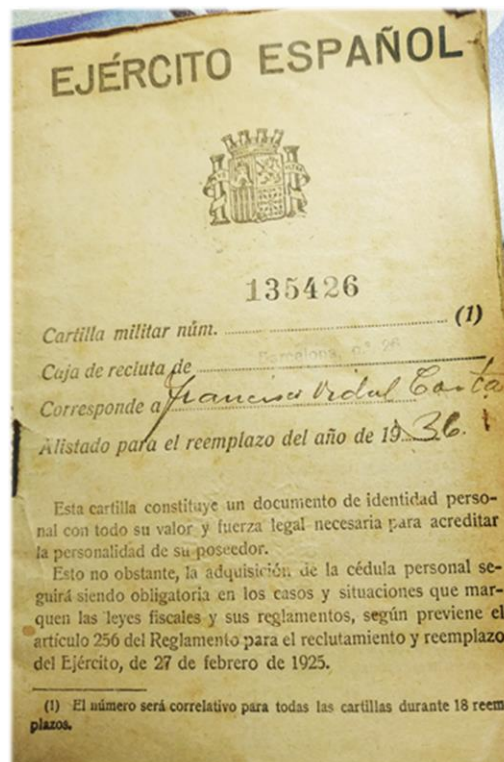 EJÉRCITO ESPAÑOL
135426
Cartilla militar núm. (1)
Caja de recluta de Barcelona, n.º 26
Corresponde a Francisco Vidal Costa
Alistado para el reemplazo del año de 1936.
Esta cartilla constituye un documento de identidad perso-
nal con todo su valor y fuerza legal necesaria para acreditar
la personalidad de su poseedor.
Esto no obstante, la adquisición de la cédula personal se-
guirá siendo obligatoria en los casos y situaciones que mar-
quen las leyes fiscales y sus reglamentos, según previene el
artículo 256 del Reglamento para el reclutamiento y reemplazo
del Ejército, de 27 de febrero de 1925.
(1) El número será correlativo para todas las cartillas durante 18 reem
plazos.